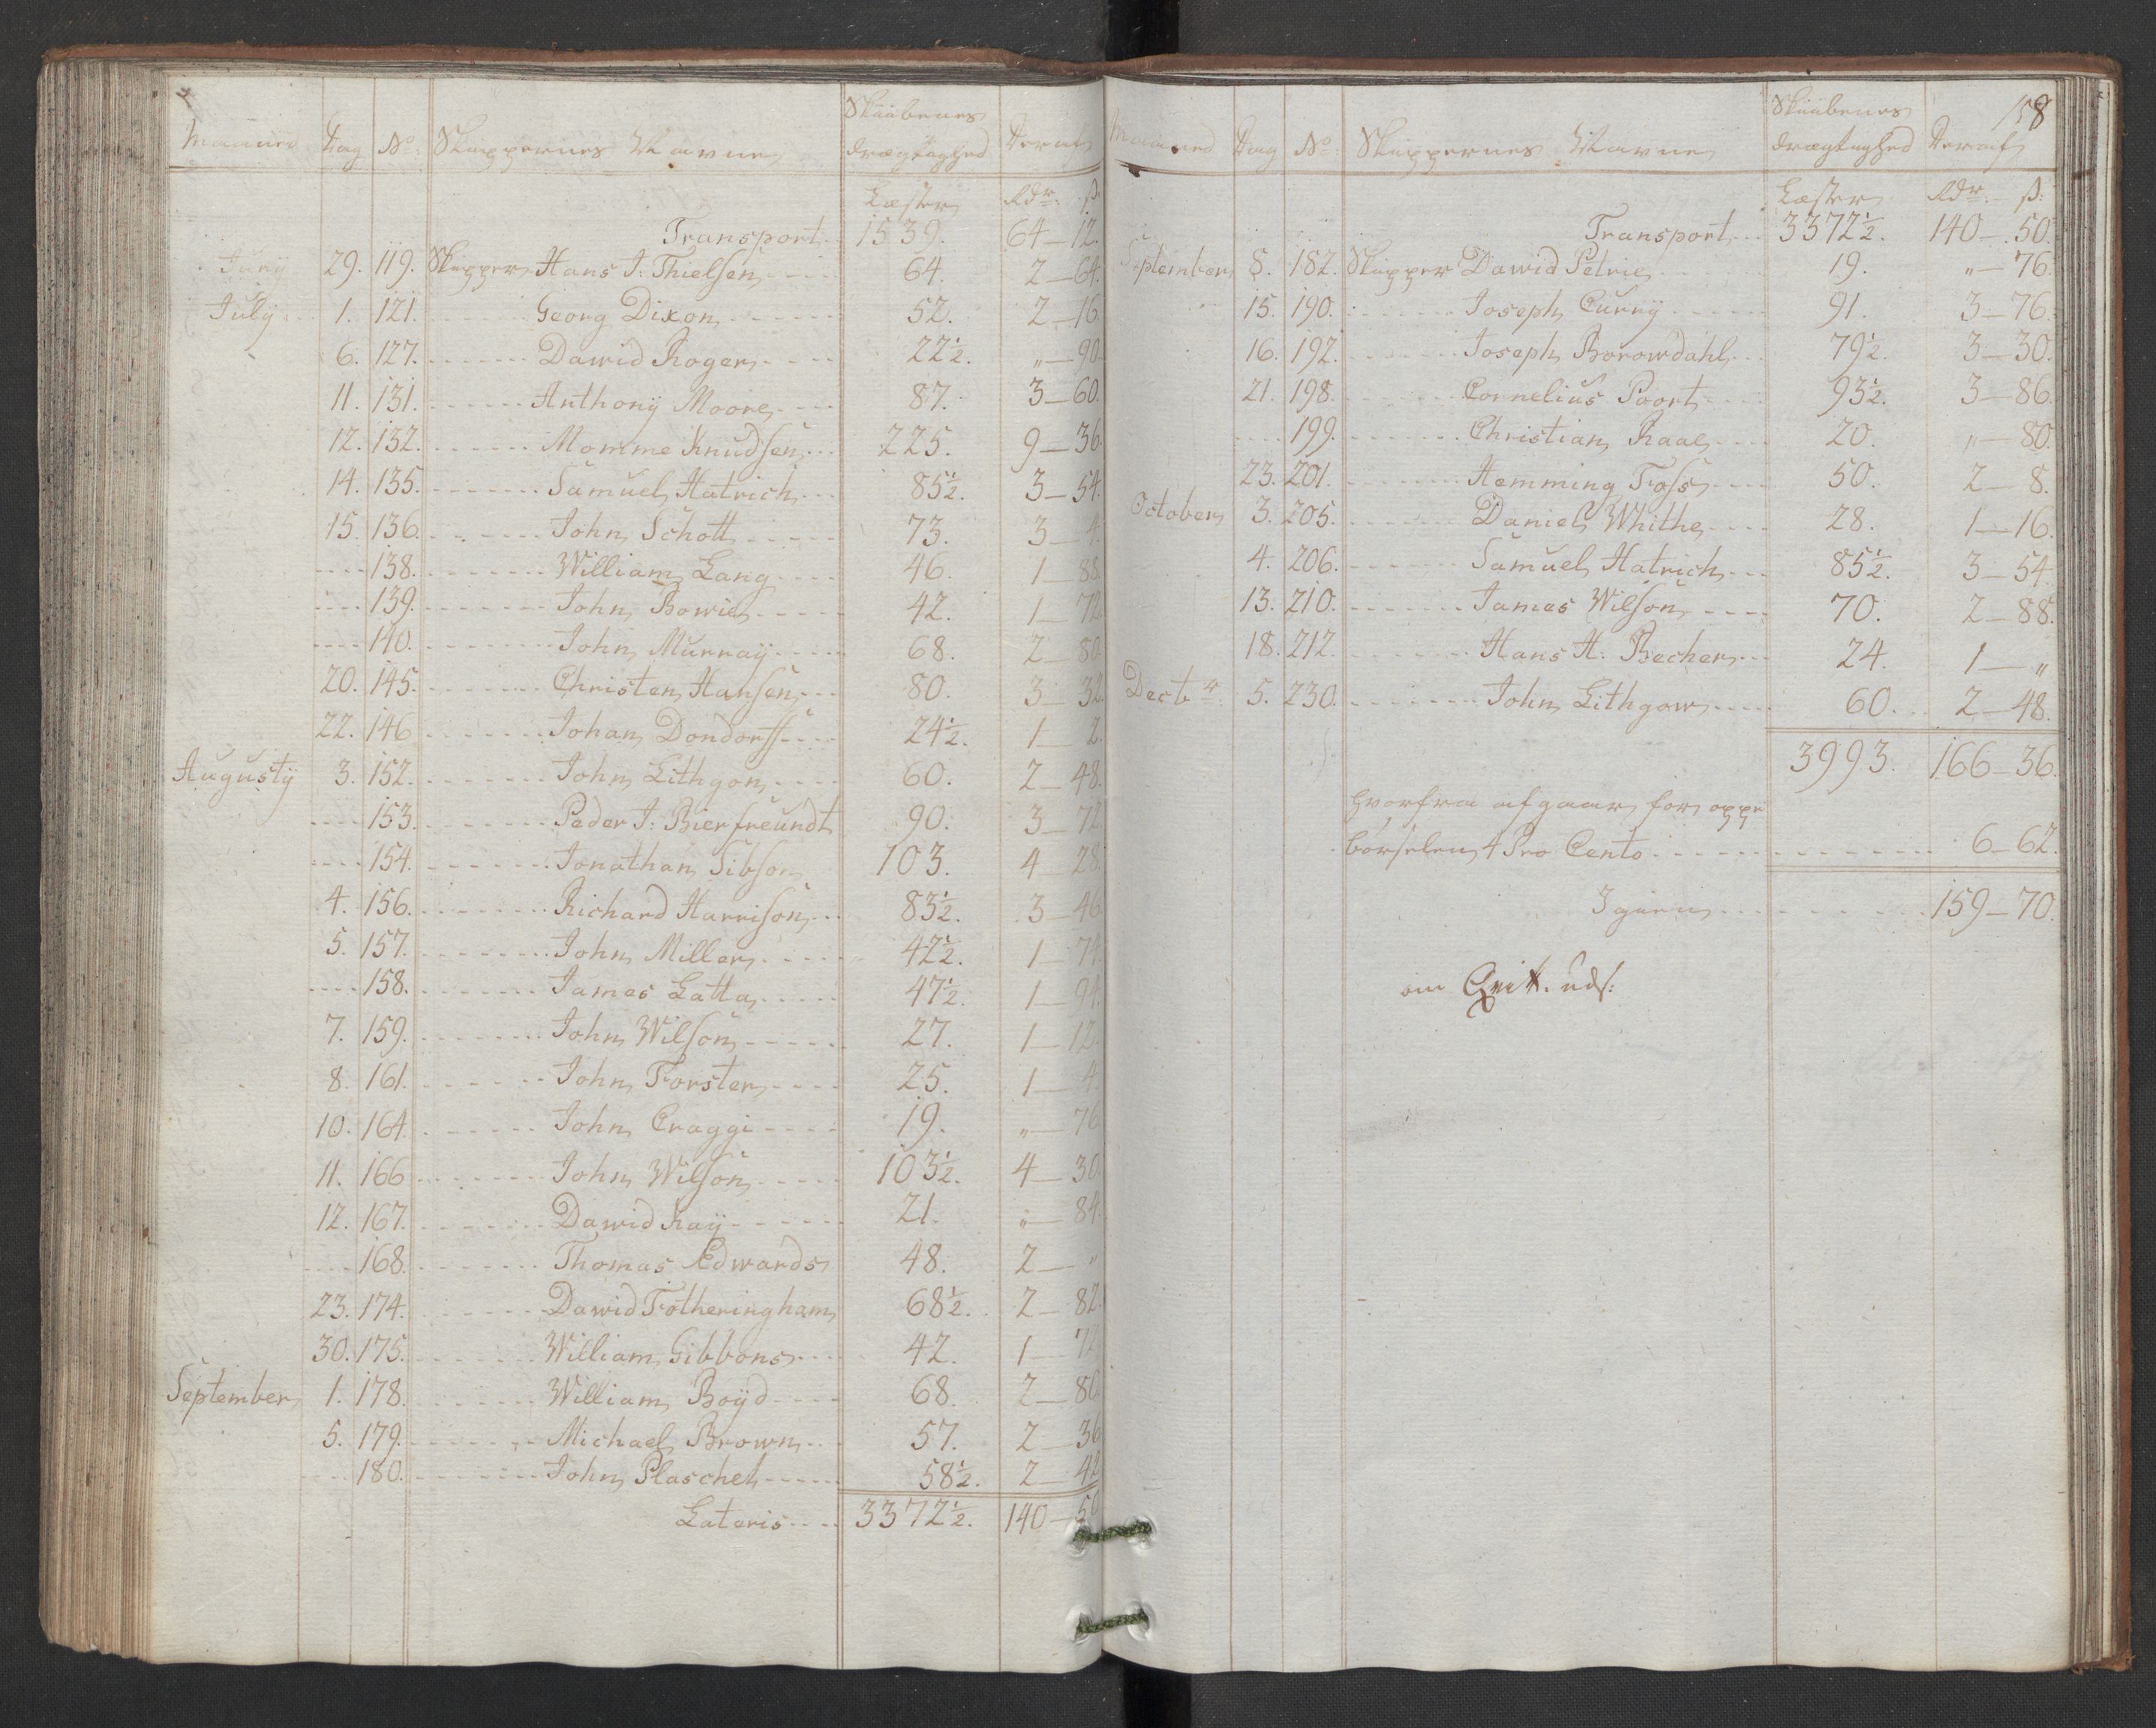 Maaned Dag No: Skippernes Navne Skiibenes drægtighed Deraf
Læster Rdr. ß.
Transport 1539. 64-12.
Juny 29. 119. Skipper Hans J: Thielsen 64. 2-64.
July 1. 121. Georg Dixon 52. 2-16
6. 127. Dawid Roger 22½. „-90.
11. 131. Anthony Moore 87. 3-60.
12. 132. Momme Knudsen 225. 9-36
14. 135. Samuel Hatrich 85½. 3-54.
15. 136. John Schott 73. 3-4.
138. William Lang 46. 1-88.
139. John Bowie 42. 1-72
140. John Murray 68. 2-80
20. 145. Christen Hansen 80. 3-32
22. 146 Johan Dondorff 24½. 1-2.
Augusty 3. 152. John Lithgon 60. 2-48.
153. Peder J: Bierfreundt 90. 3-72
154. Jonathan Sibson 103. 4-28
4. 156. Richard Harrison 83½. 3-46
5. 157. John Miller 42½. 1-74
158. James Latta 47½. 1-94.
7. 159. John Wilson 27. 1-12.
8. 161. John Forster 25. 1-4.
10. 164. John Craggi 19. „-76
11. 166 John Wilson 103½. 4-30
12. 167. Dawid Kay 21. „-84.
168. Thomas Edwards 48. 2-„
23. 174. Dawid Fotheringham 68½. 2-82.
30. 175. William Gibbons 42. 1-72
September 1. 178. William Boyd 68. 2-80
5. 179. Michael Brown 57. 2-36
180. John Plaschet 58½. 2-42
Lateris 3372½. 140-50
158
Maaned Dag No: Skippernes Navne Skiibenes drægtighed Deraf
Læster Rdr. ß:
Transport 3372½. 140-50.
September 8. 182. Skipper Dawid Petrie 19. „-76.
15. 190. Joseph Curry 91. 3-76.
16. 192. Joseph Borowdahl 79½. 3-30.
21. 198. Cornelius Poort 93½. 3-86
199. Christian Raae 20. „-80.
23. 201. Hemming Foss 50. 2-8.
October 3. 205. Daniel Whithe 28. 1-16.
4. 206. Samuel Hatrich 85½. 3-54.
13. 210. James Wilson 70. 2-88.
18. 212. Hans H: Becher 24. 1-„
Decbr. 5. 230. John Lithgow 60. 2-48.
3993. 166-36.
hvorfra afgaar for oppe
børselen 4 Pro Cento 6-62.
Igien 159-70.
om Qvit. uds: